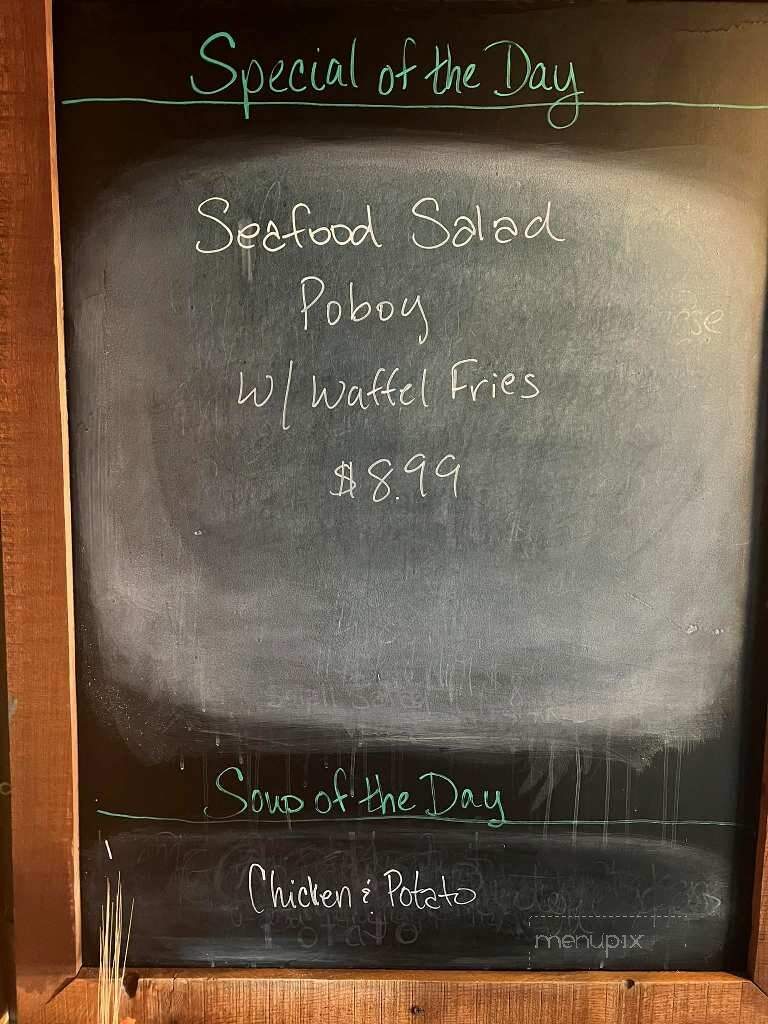 Special of the Day
Seafood Salad
Poboy
W/ Waffel Fries
$8.99
Soup of the Day
Chicken & Potato
menupix